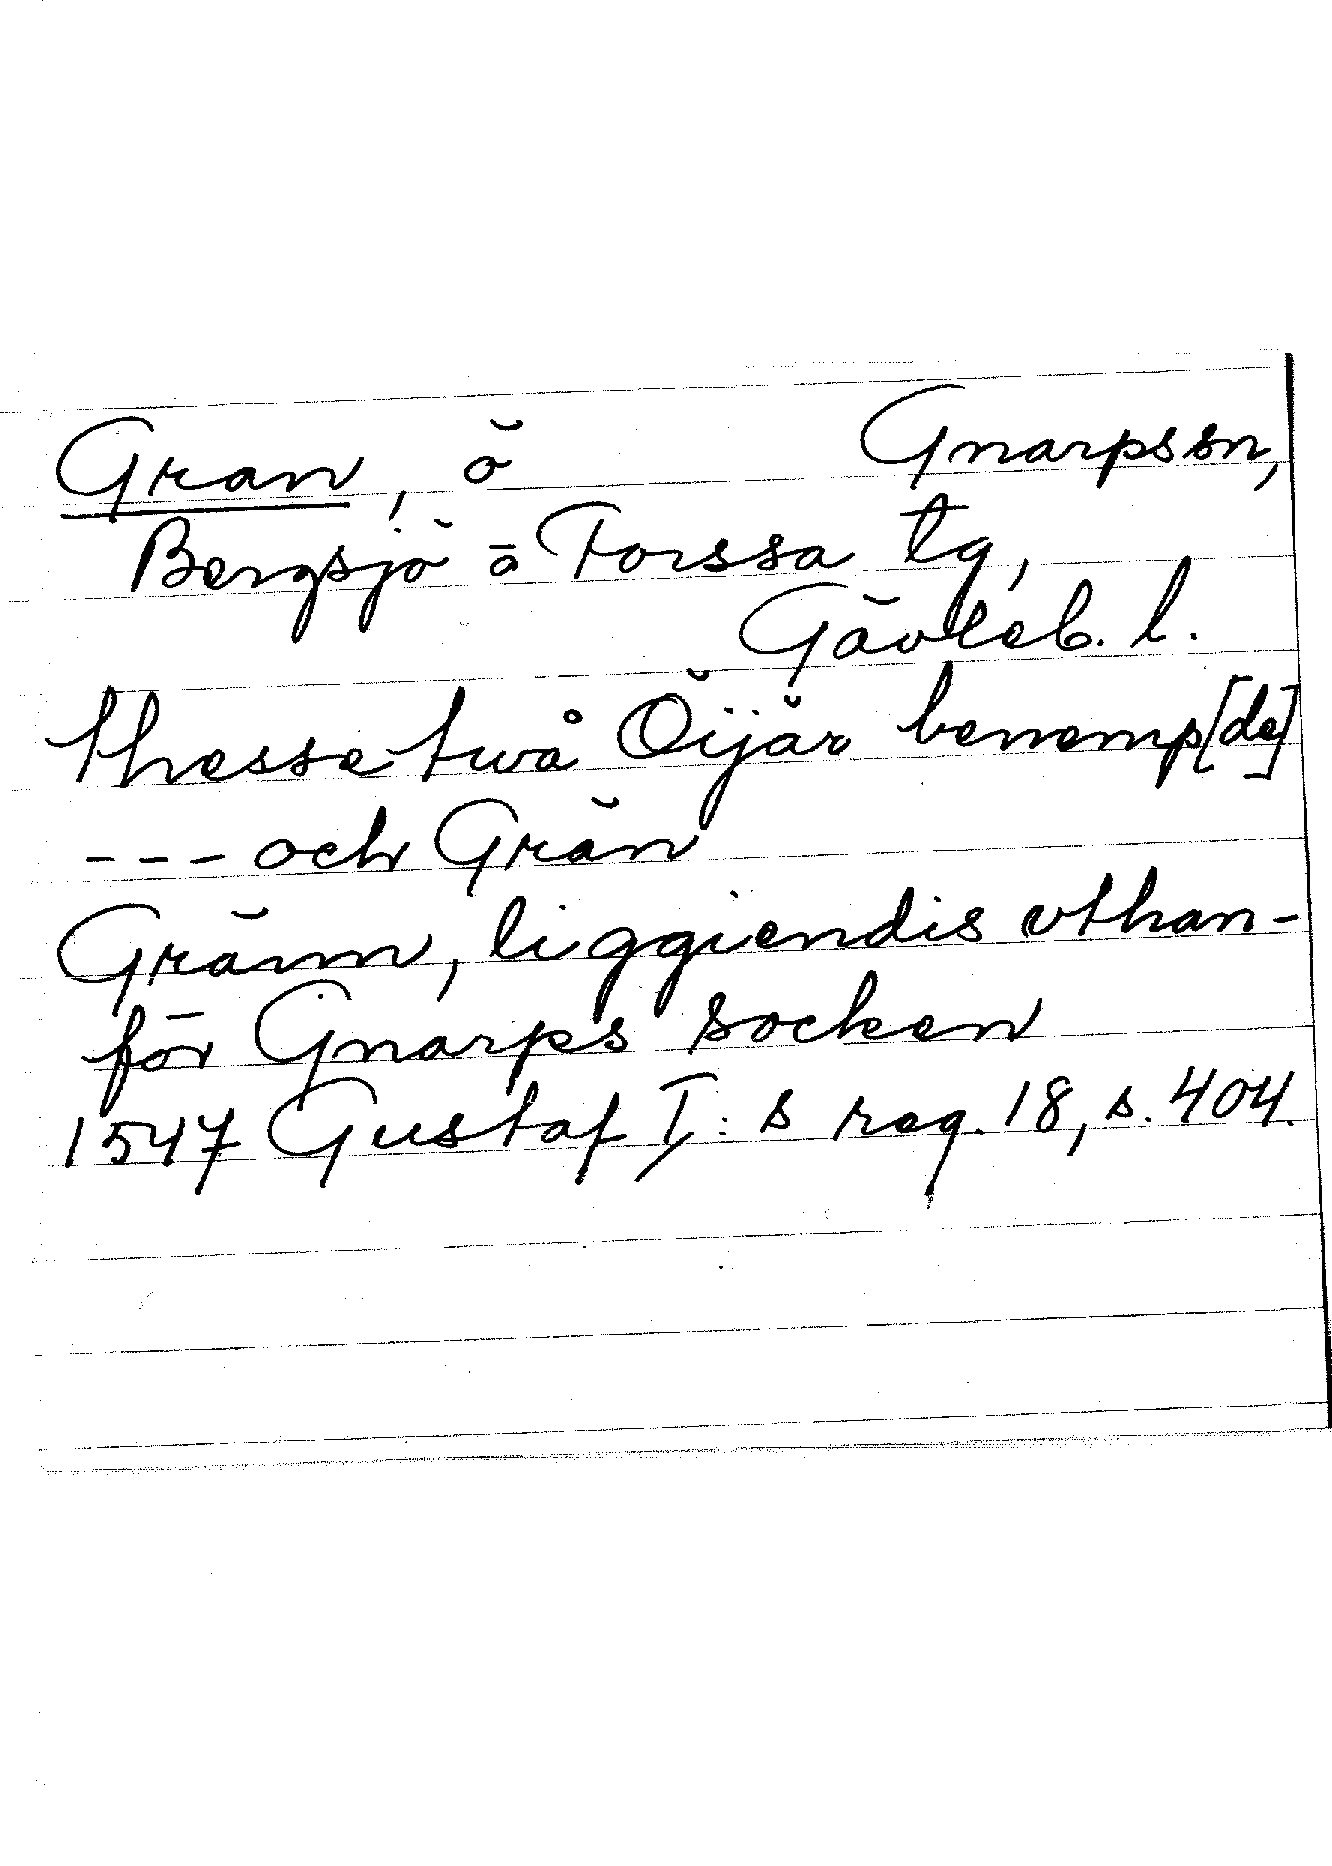 Gran, ö Gnarps sn,
Bergsjö o Forssa tg,
Gävleb. l.
thesse twå Öijär benemp[de]
--- och Grän
Gränn, liggiendis vthan-
för Gnarps socken
1547 Gustaf I:s reg. 18, s. 404.